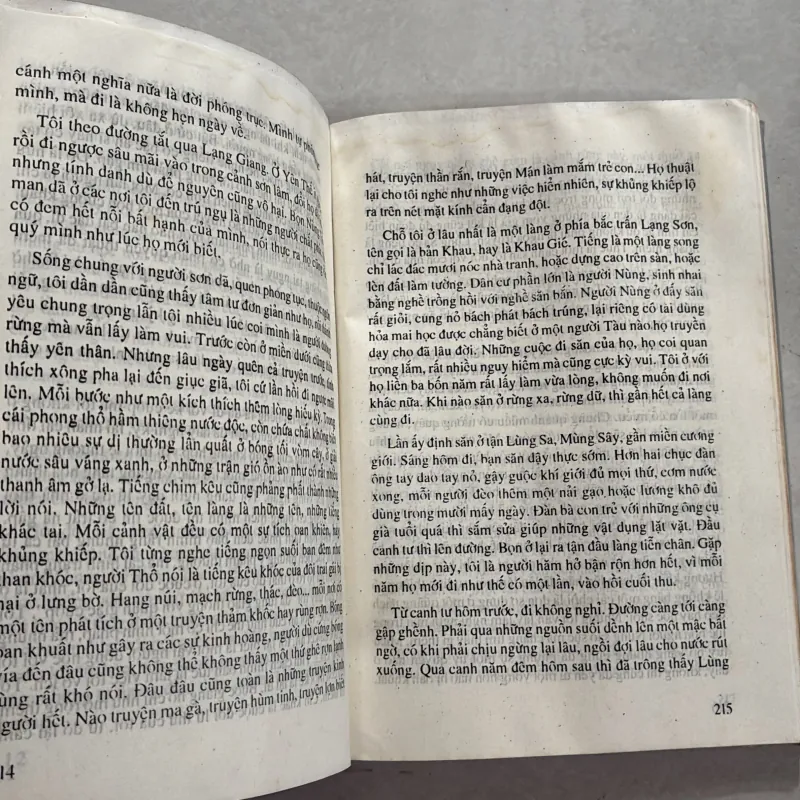 cánh một nghĩa nữa là đời phông trục. Mình tự
mình, mà đi là không hẹn ngày về.
Tôi theo đường tắt qua Lạng Giang, ở Yên Thế,
rồi đi ngược sâu mãi vào trong cảnh sơn lâm,
nhưng tính danh dù để nguyên cũng vô hại. Bọn
man dã ở các nơi tôi đến trú ngụ là những người chất
có đem hết nỗi bất hạnh của mình, nói thực ra họ cũng
quý mình như lúc họ mới biết.
Sống chung với người sơn dã, quen phong tục, thuộc
ngữ, tôi dần dần cũng thấy tâm tư đơn giản như họ,
yêu chung trọng lẫn tôi nhiều lúc coi mình là người đường
rừng mà vẫn lấy làm vui. Trước còn ở miền dưới cũng
thấy yên thân. Nhưng lâu ngày quên cả truyện trước, tính
thích xông pha lại đến giục giã, tôi cứ lần hồi đi ngược mãi
lên. Mỗi bước như một kích thích thêm lòng hiếu kỳ. Trong
cái phong thổ hầm thiêng nước độc, còn chứa chất không biết
bao nhiêu sự dị thường lẩn quất ở bóng tối vòm cây, ở giải
nước sâu váng xanh, ở những trận gió ồn ào như có rất nhiều
thanh âm gở lạ. Tiếng chim kêu cũng phảng phất thành những
lời nói. Những tên đất, tên làng là những tên, những tiếng
khác tai. Mỗi cảnh vật đều có một sự tích oan khiên, hay
khủng khiếp. Tôi từng nghe tiếng ngọn suối ban đêm như
than khóc, người Thổ nói là tiếng kêu khóc của đôi trai gái bị
nại ở lưng bờ. Hang núi, mạch rừng, thác, đèo... mỗi nơi có
một tên phát tích ở một truyện thảm khốc hay rùng rợn. Bóng
oan khuất như gây ra các sự kinh hoàng, người dù cứng bóng
vía đến đâu cũng không thể không thấy một thứ ghê rợn lạnh
lùng rất khó nói. Đâu đâu cũng toàn là những truyện kinh
người hết. Nào truyện ma gà, truyện hùm tinh, truyện lợn biết
14
hát, truyện thần rắn, truyện Mán làm mắm trẻ con... Họ thuật
lại cho tôi nghe như những việc hiển nhiên, sự khủng khiếp lộ
ra trên nét mặt kính cẩn đạng đột.
Chỗ tôi ở lâu nhất là một làng ở phía bắc trấn Lạng Sơn,
tên gọi là bản Khau, hay là Khau Gié. Tiếng là một làng song
chỉ lác đác mươi nóc nhà tranh, hoặc dựng cao trên sàn, hoặc
lèn đất làm tường. Dân cư phần lớn là người Nùng, sinh nhai
bằng nghề trồng hồi với nghề săn bắn. Người Nùng ở đấy săn
rất giỏi, cung nỏ bách phát bách trúng, lại riêng có tài dùng
hỏa mai học được chẳng biết ở một người Tàu nào họ truyền
dạy cho đã lâu đời. Những cuộc đi săn của họ, họ coi quan
trọng lắm, rất nhiều nguy hiểm mà cũng cực kỳ vui. Tôi ở với
họ liền ba bốn năm rất lấy làm vừa lòng, không muốn đi nơi
khác nữa. Khi nào săn ở rừng xa, rừng dữ, thì gần hết cả làng
cùng đi.
Lần ấy định săn ở tận Lùng Sa, Mùng Sây, gần miền cương
giới. Sáng hôm đi, bạn săn dậy thực sớm. Hơn hai chục đàn
ông tay dao tay nỏ, gậy guộc khí giới đủ mọi thứ, cơm nước
xong, mỗi người đèo thêm một nải gạo hoặc lương khô đủ
dùng trong mười mấy ngày. Đàn bà con trẻ với những ông cụ
già tuổi quá thì sắm sửa giúp những vật dụng lặt vặt. Đầu
canh tư thì lên đường. Bọn ở lại ra tận đầu làng tiễn chân. Gặp
những dịp này, tôi là người hăm hở bận rộn hơn hết, vì mỗi
năm họ mới đi như thế có một lần, vào hồi cuối thu.
Từ canh tư hôm trước, đi không nghỉ. Đường càng tới càng
gập ghềnh. Phải qua những nguồn suối dềnh lên một mặc bất
ngờ, có khi phải chịu ngừng lại lâu, ngồi đợi lâu cho nước rút
xuống. Qua canh năm đêm hôm sau thì đã trông thấy Lùng
215